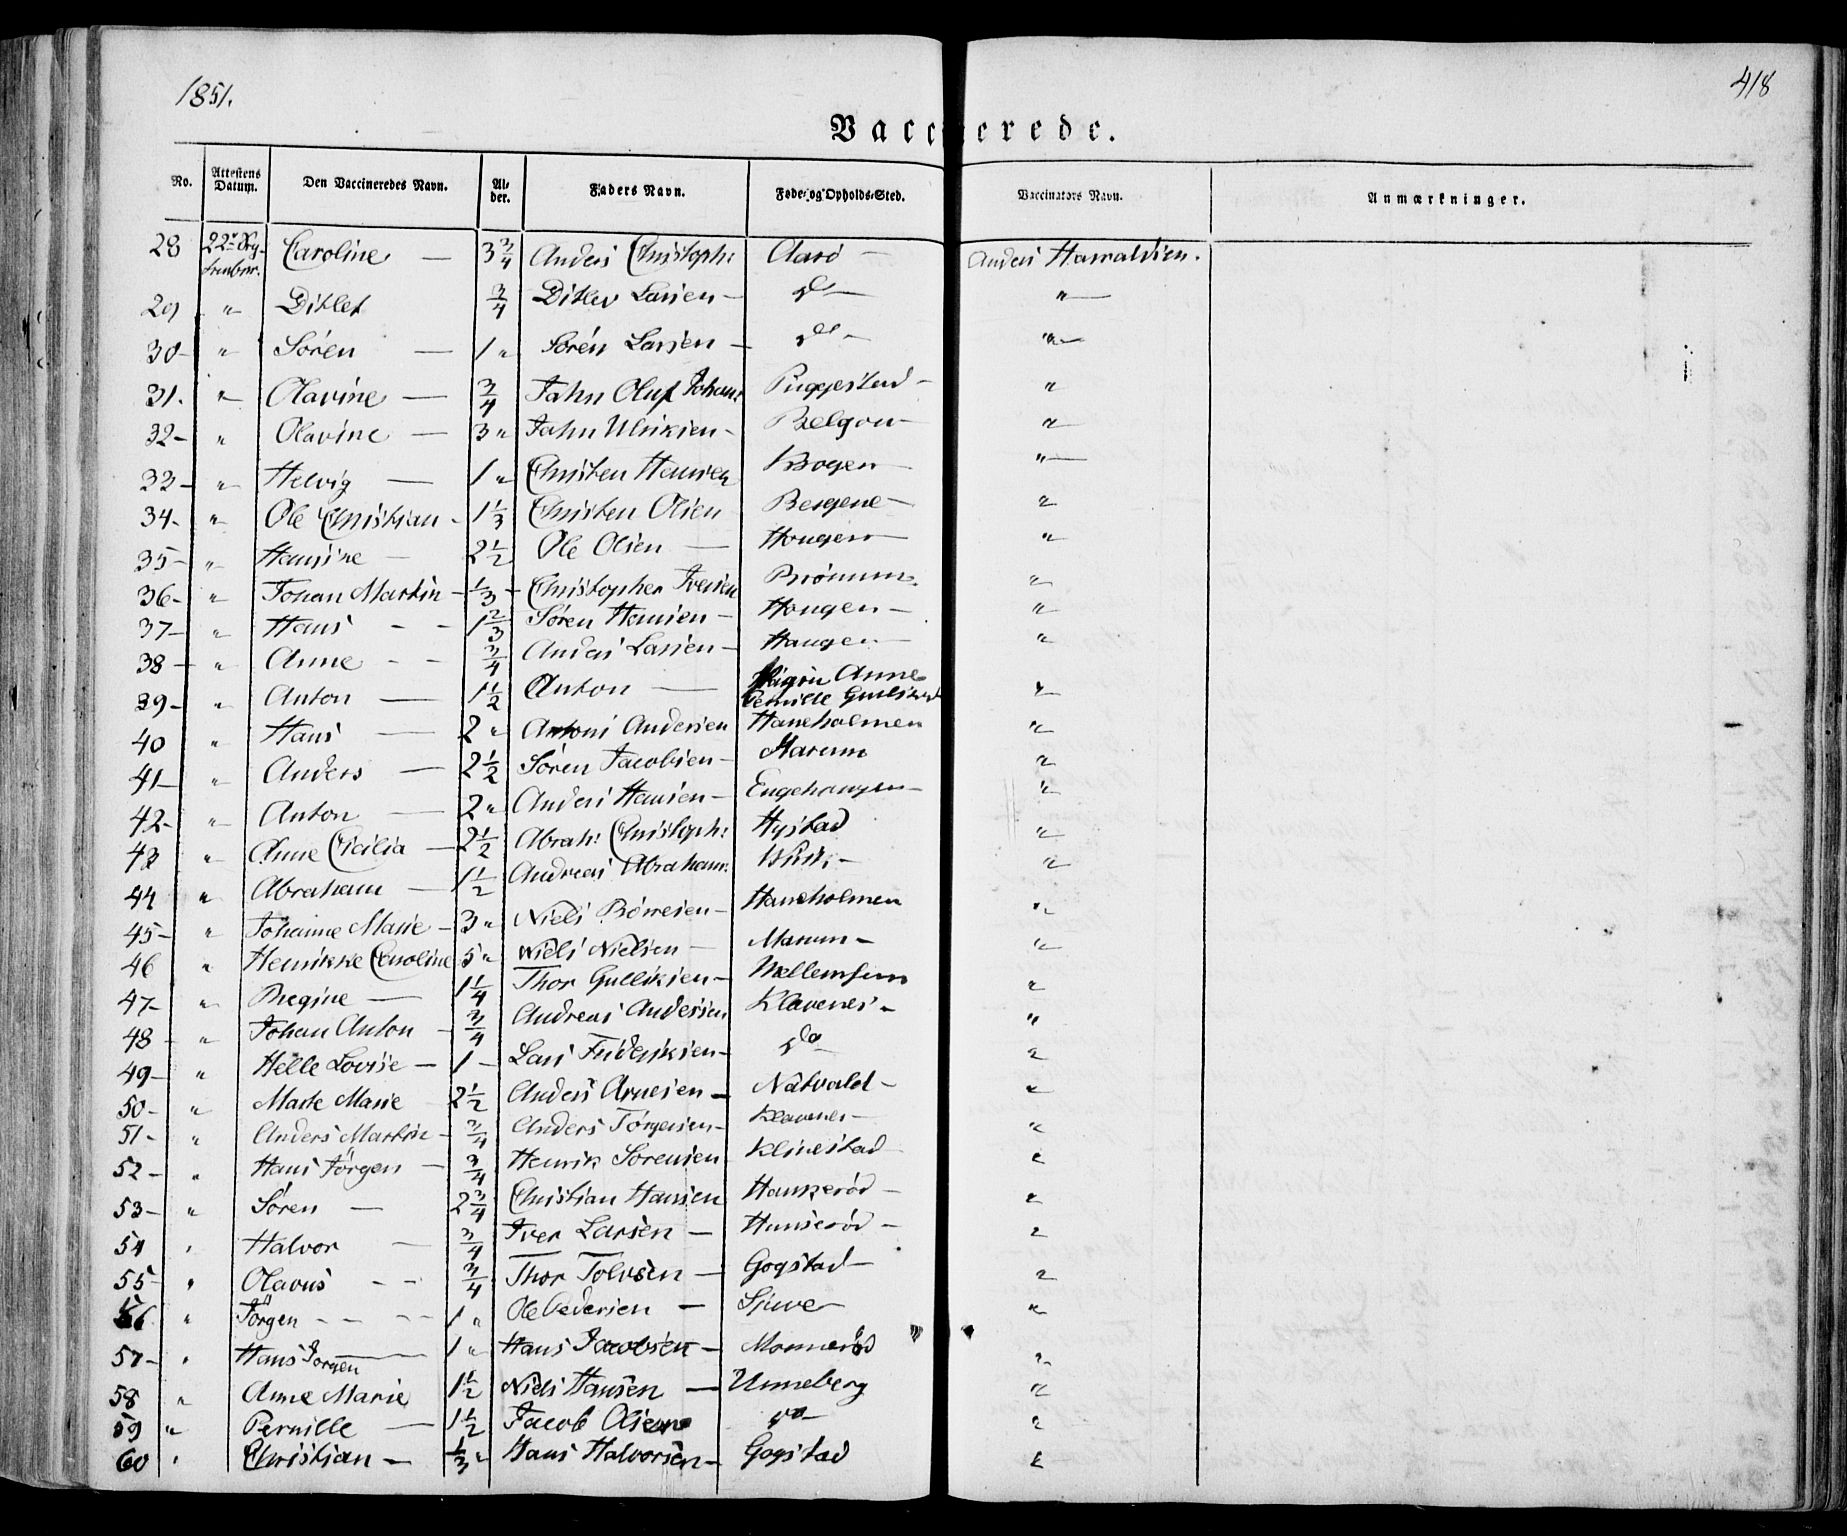 1851.
418
Vaccinerede.
No. Attestens Datum. Den Vaccineredes Navn. Al-der. Faders Navn. Føde- og Opholds-Sted. Vaccinators Navn. Anmærkninger.
28 22de Septembr. Caroline — 3 3/4 Anders Christoph: Aarø — Anders Harraldsen.
29 " Ditlef 3/4 Ditlev Larsen — do — "
30 - " Sören — 1 " Sören Larsen — do — "
31. " Olavine — 3/4 Jahn Oluf Johan: Puggestad — "
32 - " Olavine — 3 " Jahn Ulriksen - — "
33 - " Helvig — 1 " Christen Hansen — "
34 - " Ole Christian - 1 1/3 Christen Olsen Bergene — "
35 - " Hansine — 2 1/2 Ole Olsen — Hougen — "
36 - " Johan Martin - 1/3 - Christopher Iversen "
37 - " Hans - - 1 2/3 Sören Hansen - Hougen — "
38 - " Anne - - 3/4 Anders Larsen - Haugen — "
39 - " Anton — 1 1/2 Anton — Anne Pernille "
40 " Hans — 2 " Antoni Andersen Haneholmen "
41 - " Anders — 2 1/2 Sören Jacobsen - Marum "
42 - " Anton — 2 " Anders Hansen - Engehaugen — "
43 " Anne Cicilia - 2 1/2 Abrah: Christoph: Hystad "
44 " Abraham — 1 1/2 Andreas Abraham: — "
45 - " Johanne Marie - 3 " Niels Börresen - Haneholmen "
46 " Henrikke Caroline 5 " Niels Nielsen — Marum - "
47 - " Regine — 1 1/4 Thor Gulliksen - Mellemsem "
48 - " Johan Anton - 3/4 Andreas Andersen Klavenes - "
49 - " Helle Lovise - 1 - Lars Frideriksen - do — "
50 - " Marte Marie 2 1/2 Anders Arnesen - Natvald - "
51 - " Anders Martin - 3/4 Anders Jörgensen - Klavenes — "
52 - " Hans Jörgen - 3/4 Henrik Sorensen Klinestad "
53 - " Sören — 2 3/4 Christian Hansen Haukerød — "
54 " Halvor — 3/4 Iver Larsen — Hunserød — "
55 - " Olavus - - 3/4 Thor Tolvsen — Gogstad — "
56 " Jörgen - - - 1 " Ole Pedersen — Sjue — "
57 - " Hans Jorgen — 1 " Hans Jacobsen - Monnerød "
58 " Anne Marie 1 1/2 Niels Hansen — Unneberg "
59 " Pernille — 1 1/2 Jacob Olsen do — "
60 " Christian — 1/3 " Hans Halvorsen - Gogstad "